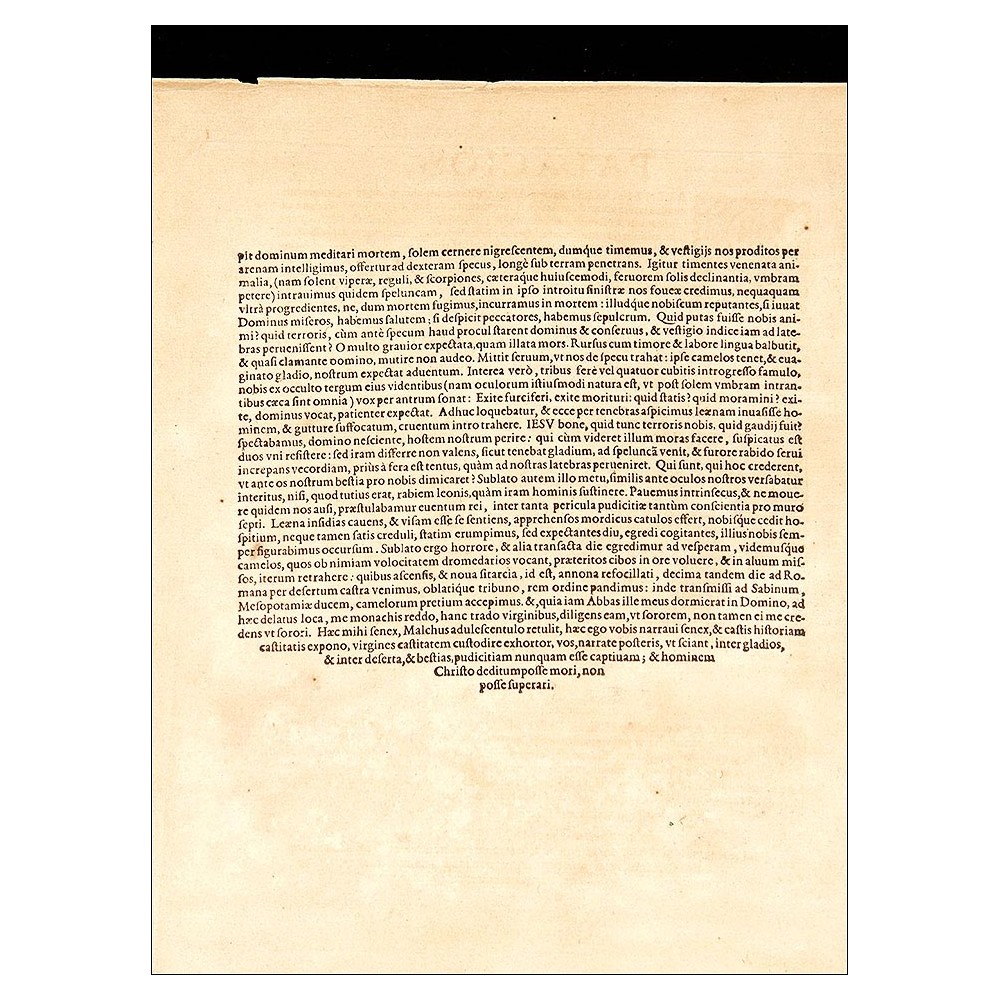 pit dominum meditari mortem, solem cernere nigrescentem, dumq́ue timemus, & vestigijs nos proditos per
arenam intelligimus, offertur ad dexteram specus, longè sub terram penetrans. Igitur timentes venenata ani-
malia, (nam solent viperæ, reguli, & scorpiones, cæteraq́ue huiuscemodi, feruorem solis declinantia, vmbram
petere) intrauimus quidem speluncam, sed statim in ipso introitu sinistræ nos foueæ credimus, nequaquam
vltrà progredientes, ne, dum mortem fugimus, incurramus in mortem: illudq́ue nobiscum reputantes, si iuuat
Dominus miseros, habemus salutem; si despicit peccatores, habemus sepulcrum. Quid putas fuisse nobis ani-
mi? quid terroris, cùm antè specum haud procul starent dominus & conseruus, & vestigio indice iam ad late-
bras peruenissent? O multo grauior expectata, quam illata mors. Rursus cum timore & labore lingua balbutit,
& quasi clamante domino, mutire non audeo. Mittit seruum, vt nos de specu trahat: ipse camelos tenet, & eua-
ginato gladio, nostrum expectat aduentum. Interea verò, tribus ferè vel quatuor cubitis introgresso famulo,
nobis ex occulto tergum eius videntibus (nam oculorum istiusmodi natura est, vt post solem vmbram intran-
tibus cæca sint omnia) vox per antrum sonat: Exite furciferi, exite morituri: quid statis? quid moramini? exi-
te, dominus vocat, patienter expectat. Adhuc loquebatur, & ecce per tenebras aspicimus leænam inuasisse ho-
minem, & gutture suffocatum, cruentum intro trahere. IESV bone, quid tunc terroris nobis, quid gaudij fuit?
spectabamus, domino nesciente, hostem nostrum perire: qui cùm videret illum moras facere, suspicatus est
duos vni resistere: sed iram differre non valens, sicut tenebat gladium, ad speluncã venit, & furore rabido serui
increpans vecordiam, priùs à fera est tentus, quàm ad nostras latebras perueniret. Qui sunt, qui hoc crederent,
vt ante os nostrum bestia pro nobis dimicaret? Sublato autem illo metu, similis ante oculos nostros versabatur
interitus, nisi, quod tutius erat, rabiem leonis, quàm iram hominis sustinere. Pauemus intrinsecus, & ne moue-
re quidem nos ausi, præstulabamur euentum rei, inter tanta pericula pudicitiæ tantùm conscientia pro muro
septi. Leæna insidias cauens, & visam esse se sentiens, apprehensos mordicus catulos effert, nobisq́ue cedit ho-
spitium, neque tamen satis creduli, statim erumpimus, sed expectantes diu, egredi cogitantes, illius nobis sem-
per figurabimus occursum. Sublato ergo horrore, & alia transacta die egredimur ad vesperam, videmusq́ue
camelos, quos ob nimiam volocitatem dromedarios vocant, præteritos cibos in ore voluere, & in aluum mis-
sos, iterum retrahere: quibus ascensis, & noua sitarcia, id est, annona refocillati, decima tandem die ad Ro-
mana per desertum castra venimus, oblatique tribuno, rem ordine pandimus: inde transmissi ad Sabinum,
Mesopotamiæ ducem, camelorum pretium accepimus. &, quia iam Abbas ille meus dormierat in Domino, ad
hæc delatus loca, me monachis reddo, hanc trado virginibus, diligens eam, vt sororem, non tamen ei me cre-
dens vt sorori. Hæc mihi senex, Malchus adulescentulo retulit, hæc ego vobis narraui senex, & castis historiam
castitatis expono, virgines castitatem custodire exhortor, vos, narrate posteris, vt sciant, inter gladios,
& inter deserta, & bestias, pudicitiam nunquam esse captiuam; & hominem
Christo deditum posse mori, non
posse superari.